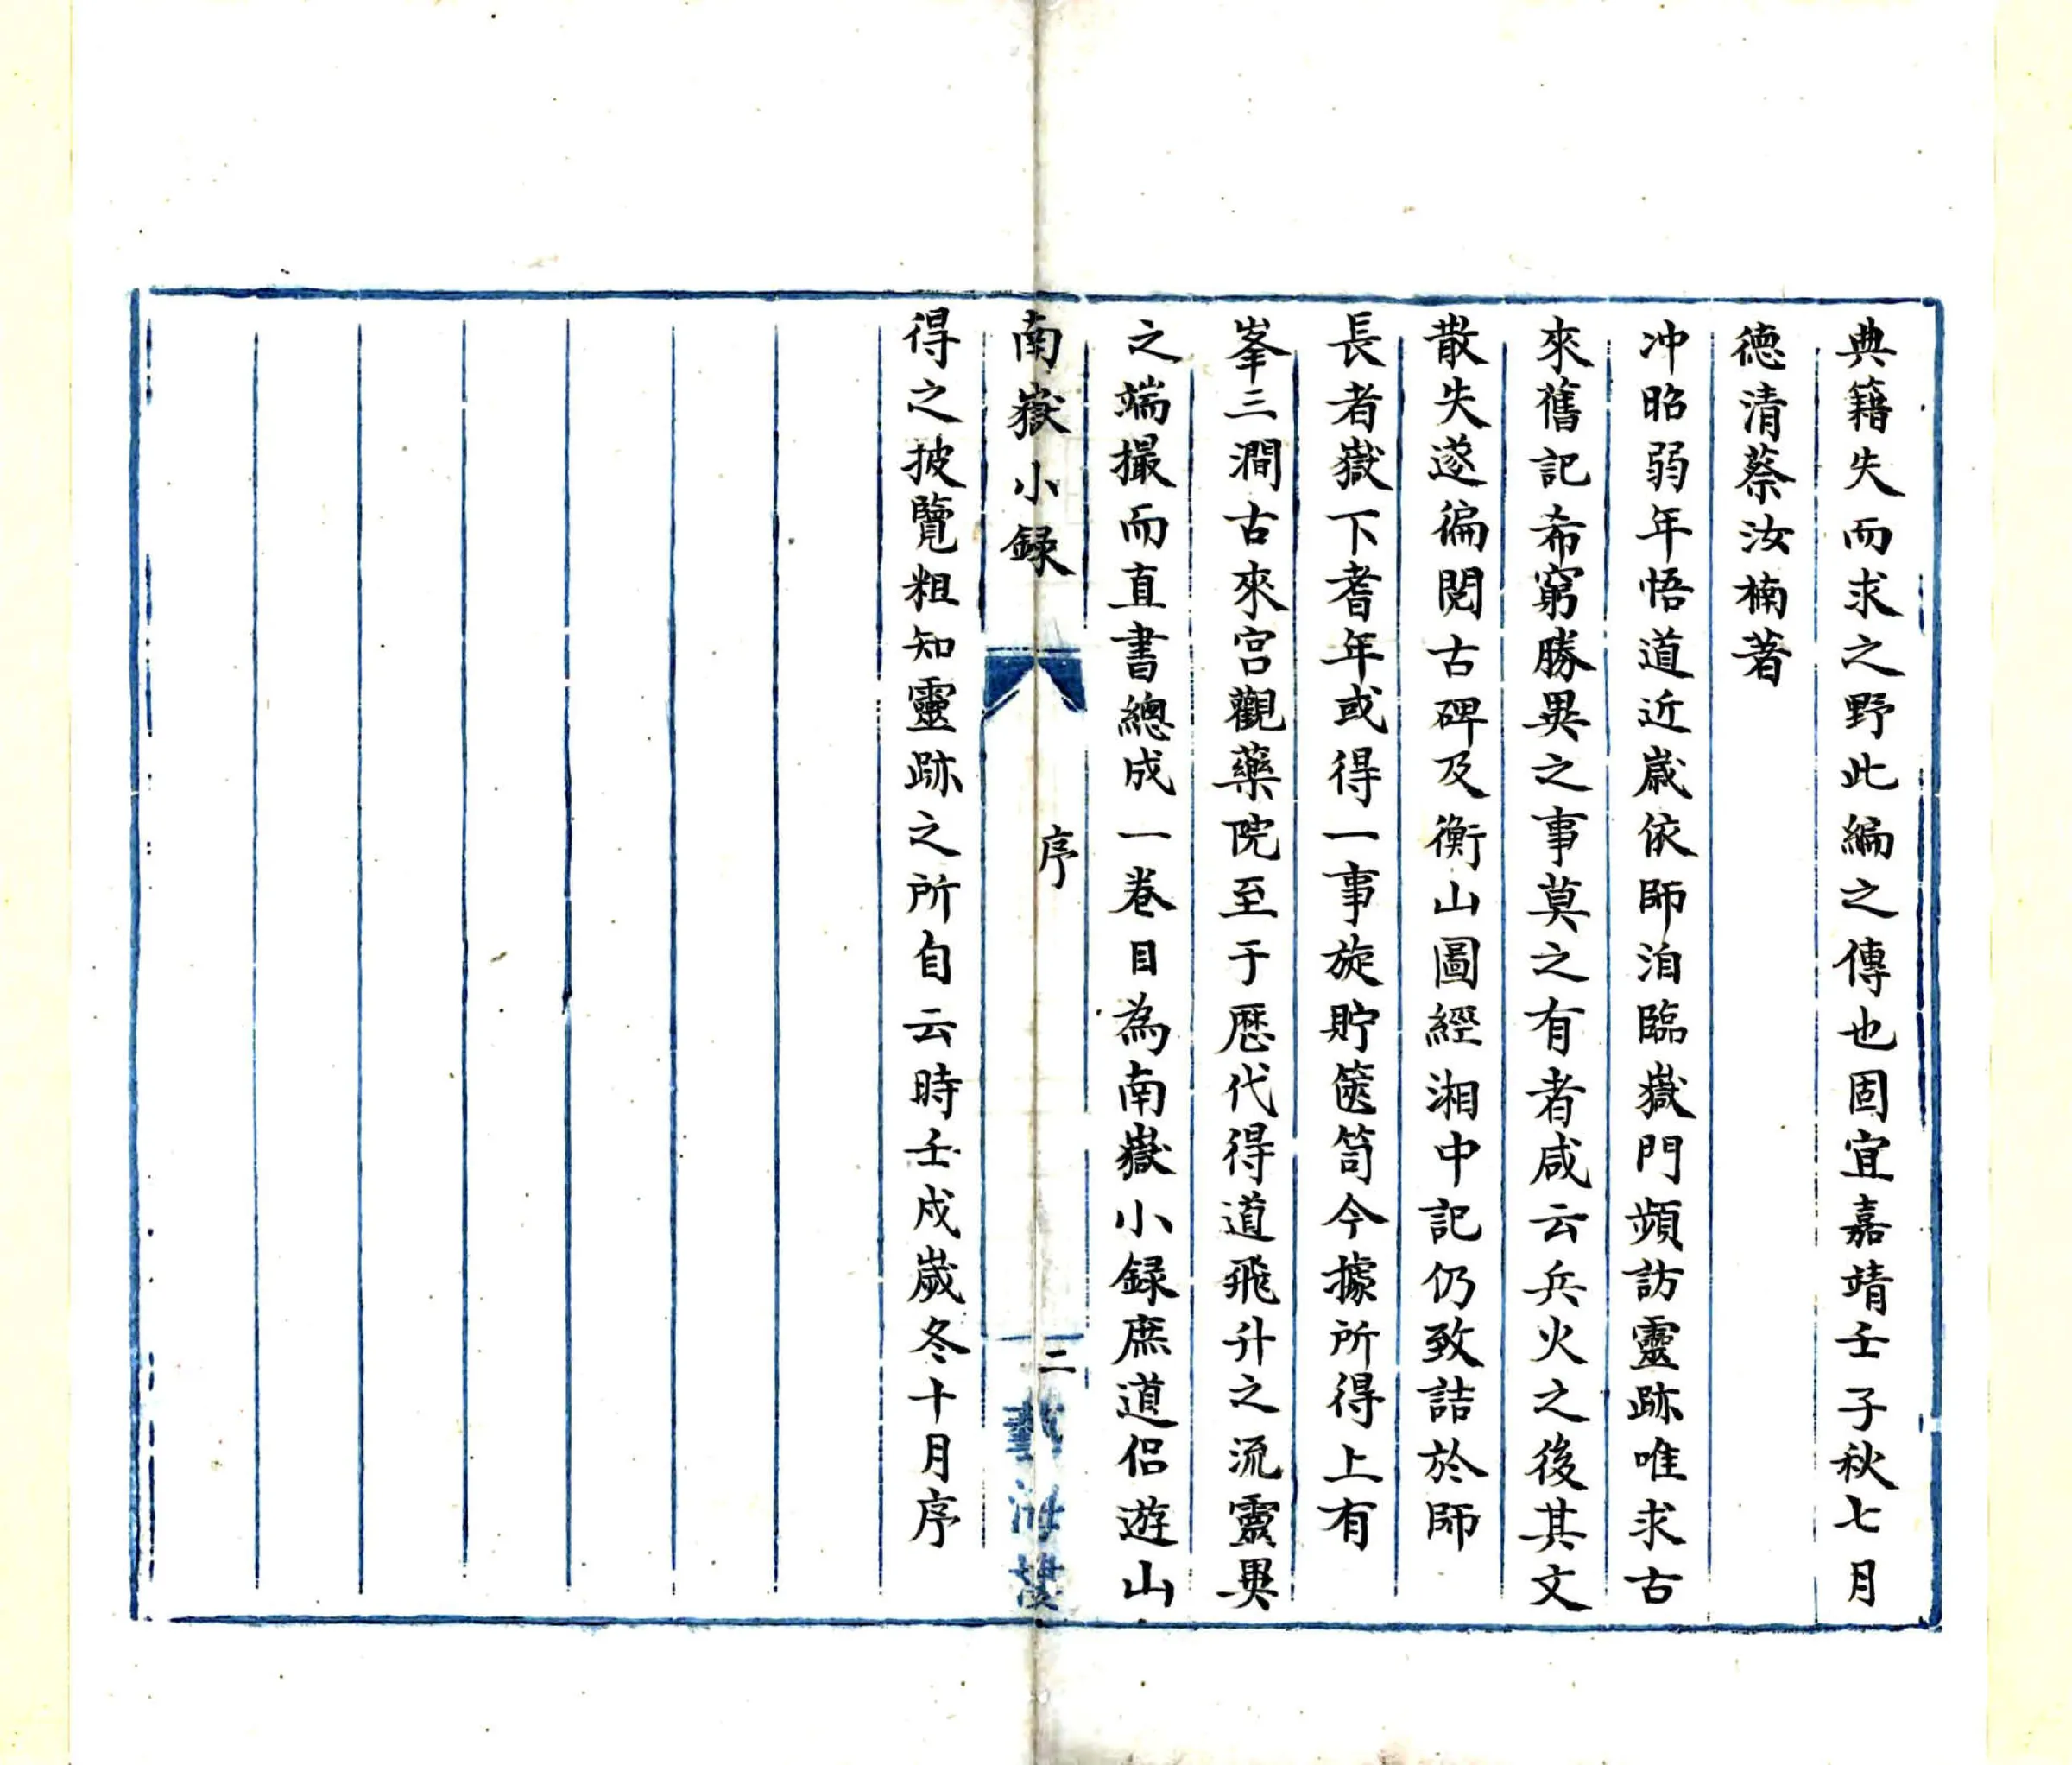 典籍失而求之野此編之傳也固宜嘉靖壬子秋七月
德清蔡汝楠著
冲昭弱年悟道近歲依師洎臨嶽門頻訪靈跡唯求古
來舊記希窮勝異之事莫之有者咸云兵火之後其文
散失遂徧閱古碑及衡山圖經湘中記仍致詰於師
長者嶽下耆年或得一事旋貯篋笥今據所得上有
峯三澗古來宮觀藥院至于歷代得道飛升之流靈異
之端撮而直書總成一卷目為南嶽小録庶道侶遊山
南嶽小録
序
二
藝海樓
得之披覽粗知靈跡之所自云時壬戌歲冬十月序